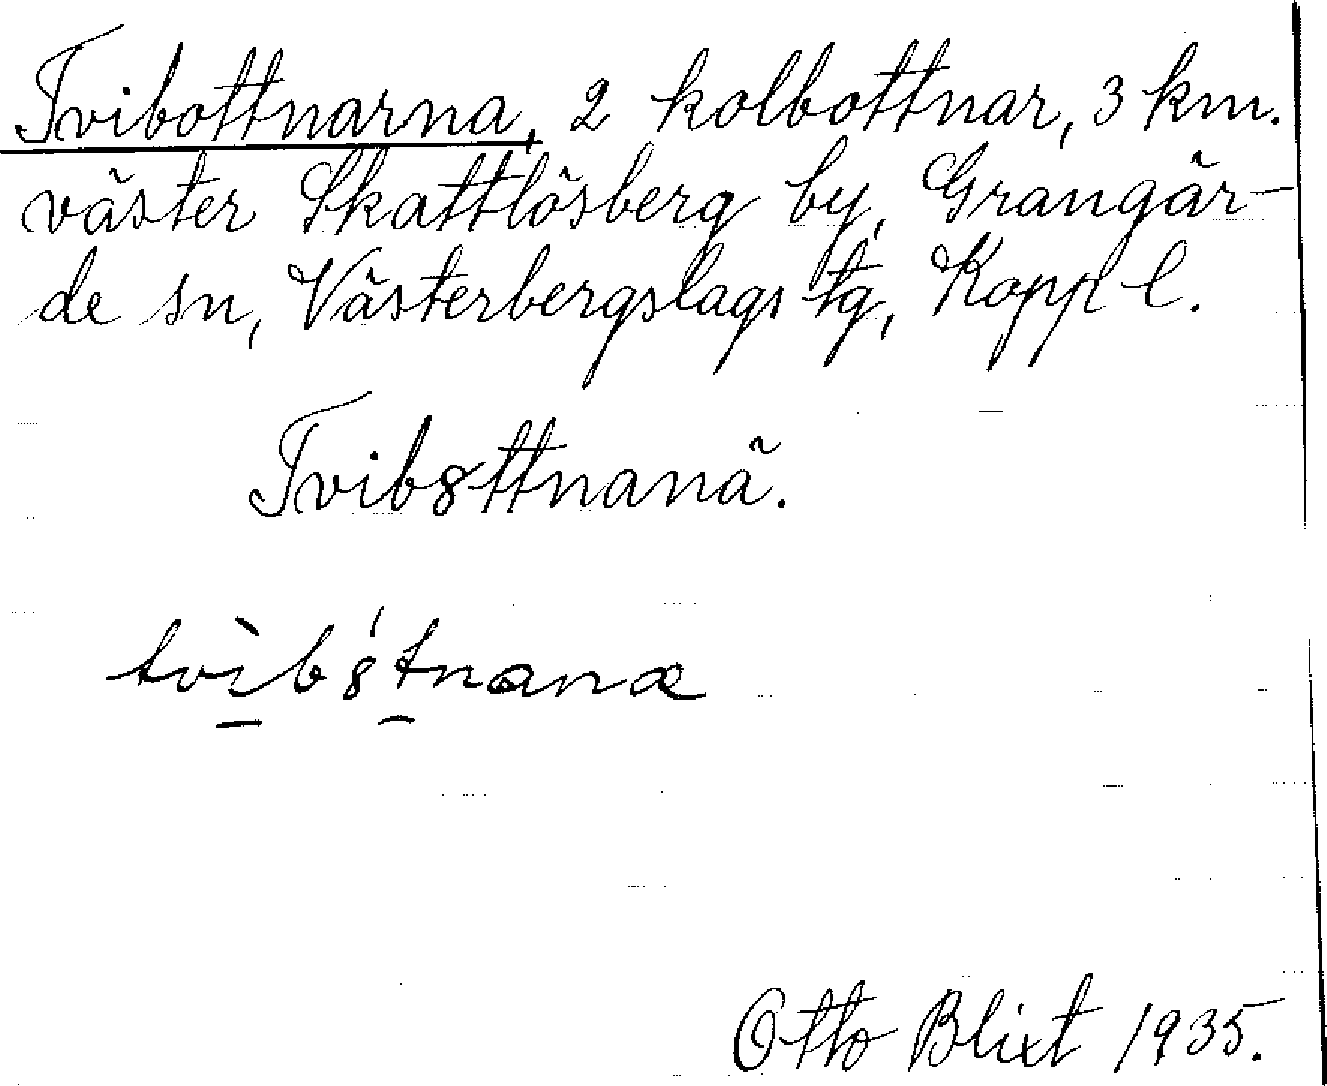 Tvibottnarna, 2 kolbottnar, 3 km.
väster Skattlösberg by, Grangär-
de sn, Västerbergslags tg, Kopp l.
Tvib8ttnanä.
tvìb8́tnanæ
Otto Blixt 1935.